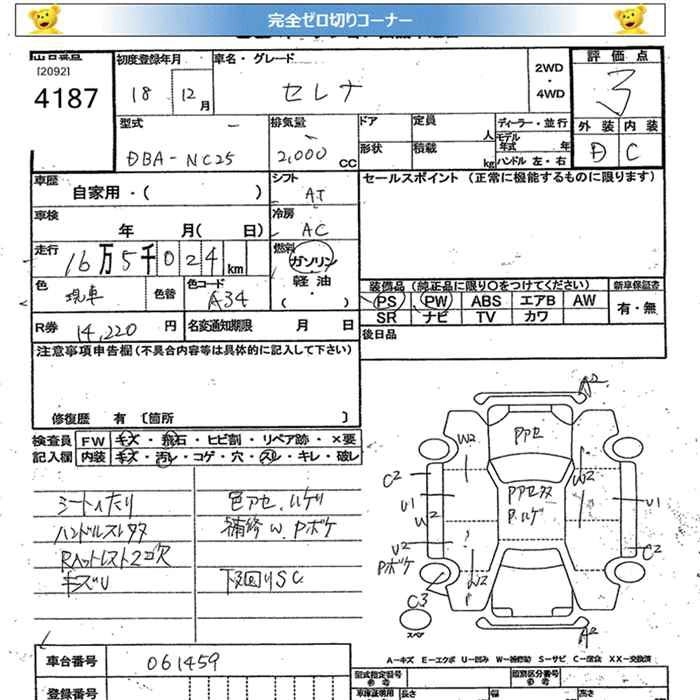 完全ゼロ切りコーナー
[2092]
4187
初度登録年月
18 12月
車名・グレード
セレナ
2WD
・
4WD
評価点
3
外装 内装
D C
型式
DBA-NC25
排気量
2,000 CC
ドア
定員 人
形状
積載 kg
ディーラー・並行
モデル年式 年
ハンドル 左・右
車歴
自家用・( )
シフト
AT
セールスポイント (正常に機能するものに限ります)
車検
年 月( 日)
冷房
AC
走行
16万5千024km
燃料
ガソリン
軽油
( ・ )
色
現車
色替
色コード
A34
装備品 (純正品に限り○をつけてください)
新車保証書
PS PW ABS エアB AW
有・無
SR ナビ TV カワ
R券 14,220 円
名変通知期限 月 日
後日品
注意事項申告欄 (不具合内容等は具体的に記入して下さい)
修復歴 有 〔箇所 〕
検査員
記入欄
FW キズ・飛石・ヒビ割・リペア跡・×要
内装 キズ・汚レ・コゲ・穴・スレ・キレ・破レ
シートヘたり
ハンドルスレ タタ
Rヘットレスト2コ欠
キズU
色アセ、ハゲリ
補修W、Pボケ
下回りSC
A2
W2
Pアセ
C2
U1
W2
Pアセタタ
P.ハゲ
W2
U1
U2
Pボケ
C2
W2
P
C3
スペア
A2
A-キズ E-エクボ U-凹み W-補修跡 S-サビ C-腐食 XX-交換済
車台番号
061459
登録番号
型式指定番号
類別区分番号
長さ
幅
高さ